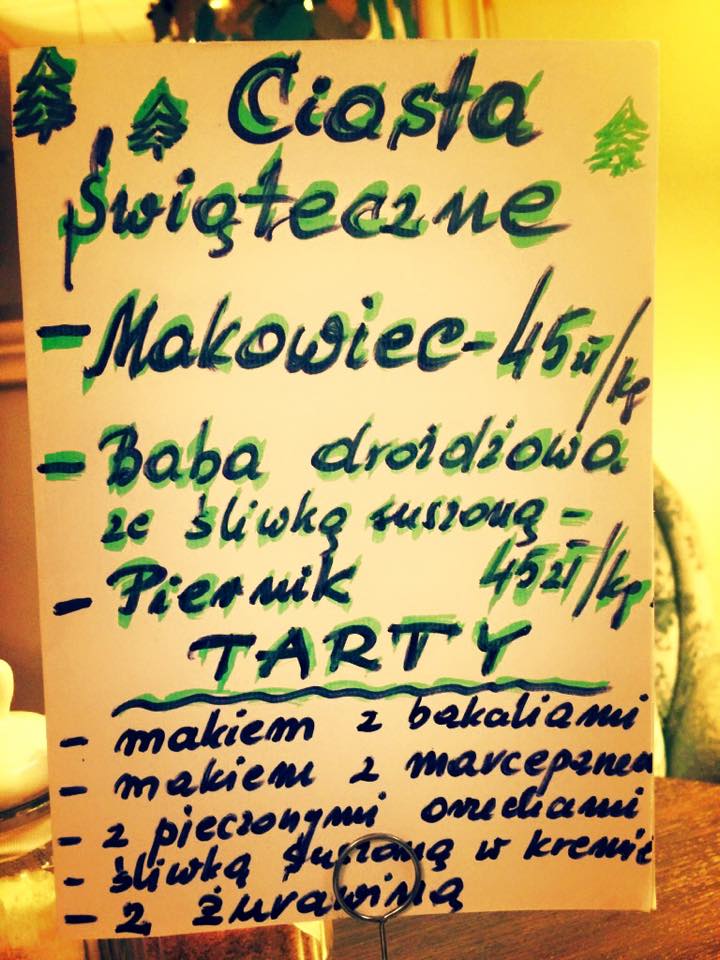 Ciasta
świąteczne
- Makowiec - 45 zł/kg
- Baba drożdżowa
ze śliwką suszoną -
- Piernik 45 zł/kg
TARTY
- makiem z bakaliami
- makiem z marcepanem
- z pieczonymi orzechami
- śliwką suszoną w kremie
- z żurawiną